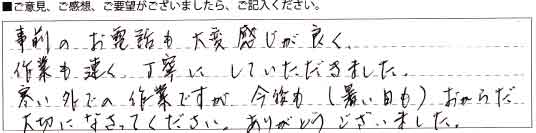 ■ご意見、ご感想、ご要望がございましたら、ご記入ください。
事前のお電話も大変感じが良く、
作業も速く丁寧にしていただきました。
寒い外での作業ですが今後も(暑い日も)おからだ
大切になさってください。ありがとうございました。